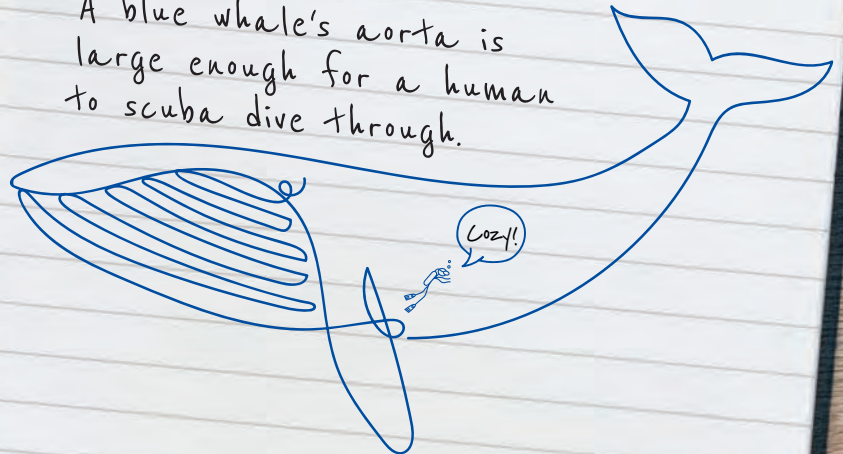 A blue whale's aorta is
large enough for a human
to scuba dive through.
Cozy!